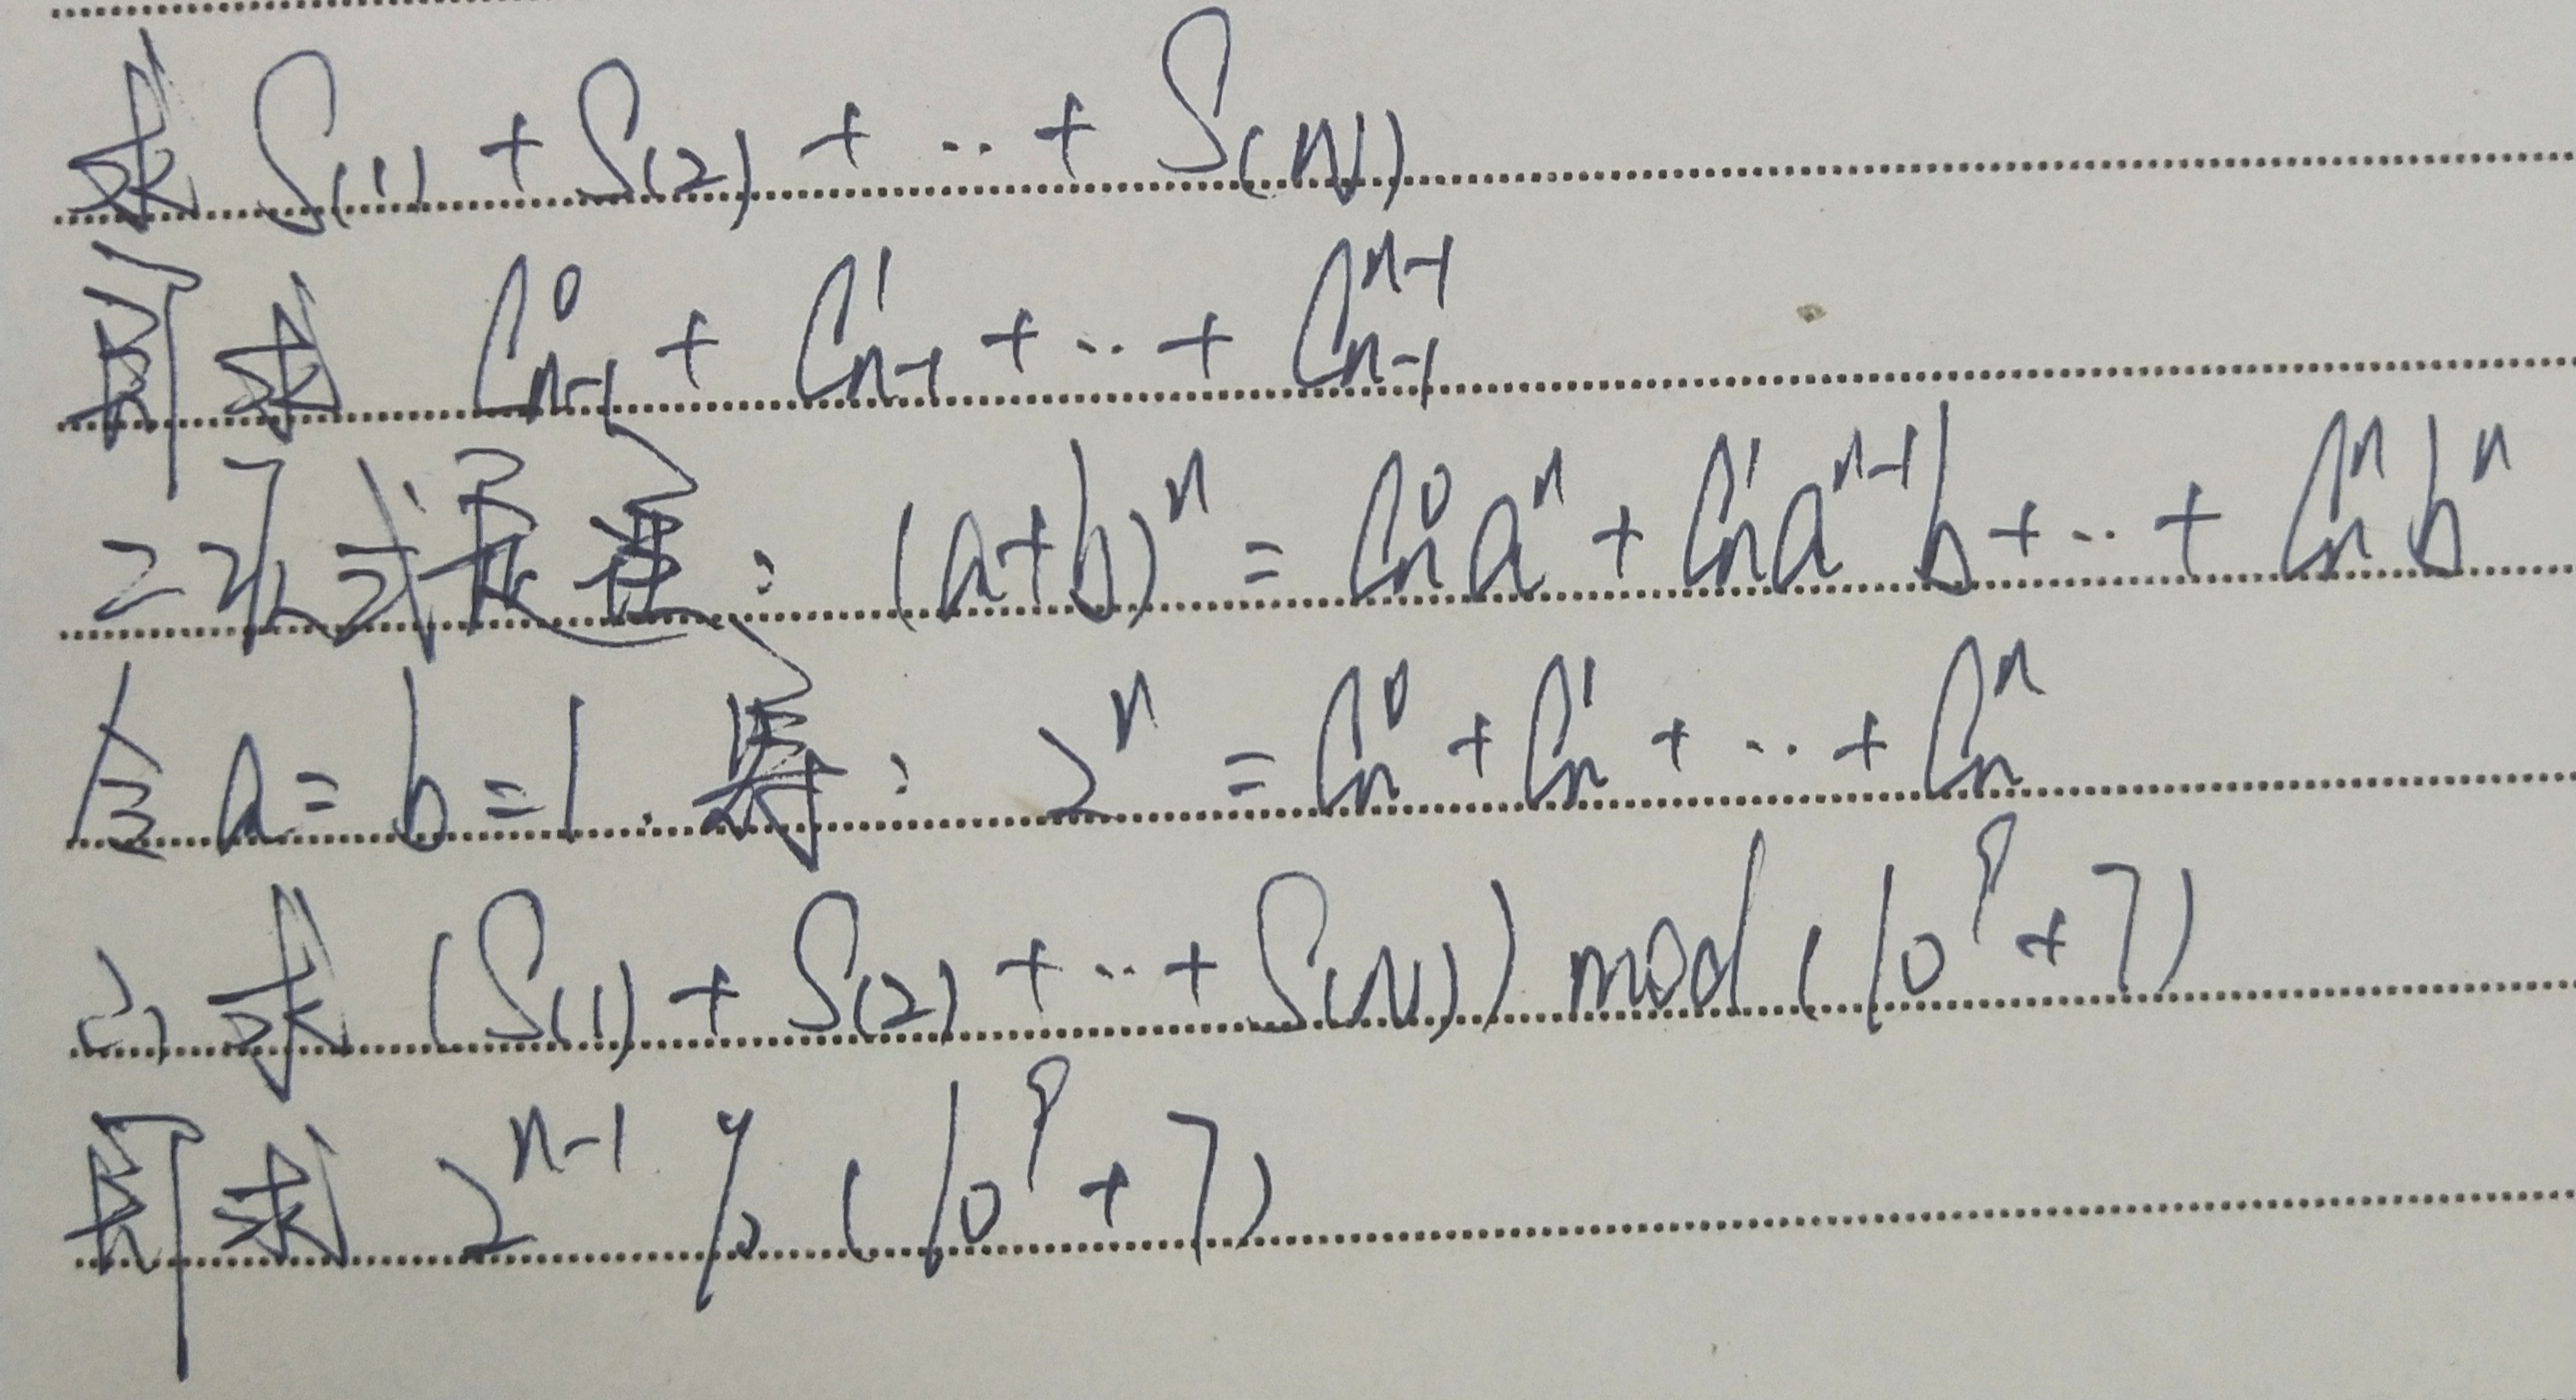 求 S(1) + S(2) + ·· + S(N)
即求 C⁰ₙ₋₁ + C¹ₙ₋₁ + ·· + Cⁿ⁻¹ₙ₋₁
二项式定理: (a+b)ⁿ = C⁰ₙaⁿ + C¹ₙaⁿ⁻¹b + ·· + Cⁿₙbⁿ
令 a = b = 1. 得: 2ⁿ = C⁰ₙ + C¹ₙ + ·· + Cⁿₙ
∴ 求 (S(1) + S(2) + ·· + S(N)) mod (10⁹+7)
即求 2ⁿ⁻¹ % (10⁹+7)